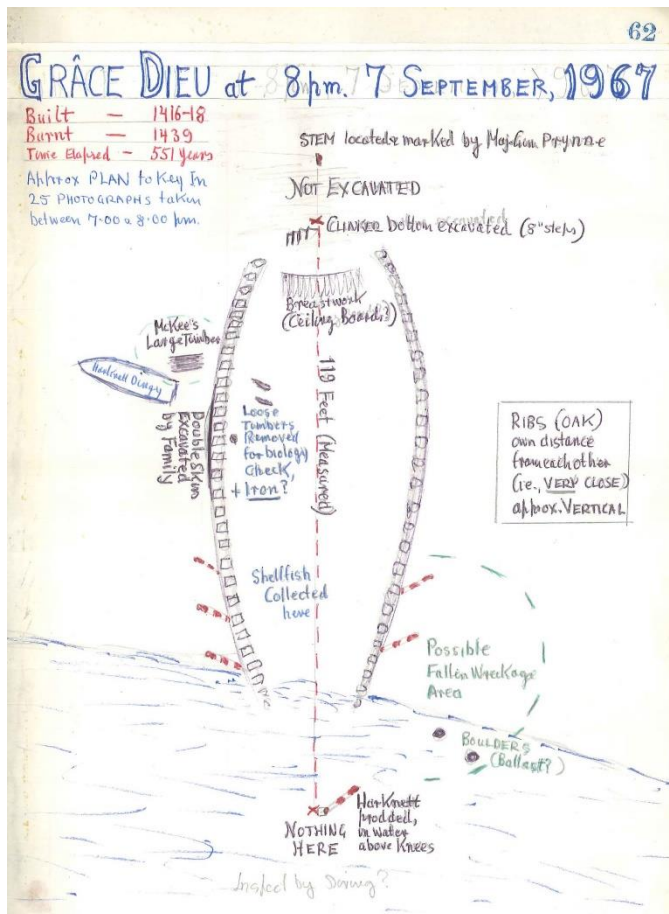 62
GRÂCE DIEU at 8pm. 7 SEPTEMBER, 1967
Built — 1416-18
Burnt — 1439
Time Elapsed — 551 Years
Approx PLAN to Key In
25 PHOTOGRAPHS taken
between 7.00 & 8.00 pm.
STEM located & marked by Maj-Gen Prynne
NOT EXCAVATED
CLINKER bottom excavated (8" steps)
Breastwork
(Ceiling Board?)
McKee's
Large Timber
Harknett Dingy
Double Skin
Excavated
by Family
Loose
Timbers
Removed
for biology
Check,
+ Iron?
119 Feet (Measured)
RIBS (OAK)
own distance
from each other
(i.e., VERY CLOSE)
approx. VERTICAL
Shellfish
Collected
here
Possible
Fallen Wreckage
Area
BOULDERS
(Ballast?)
NOTHING
HERE
Harknett
prodded,
in water
above Knees
Inspect by Diving?